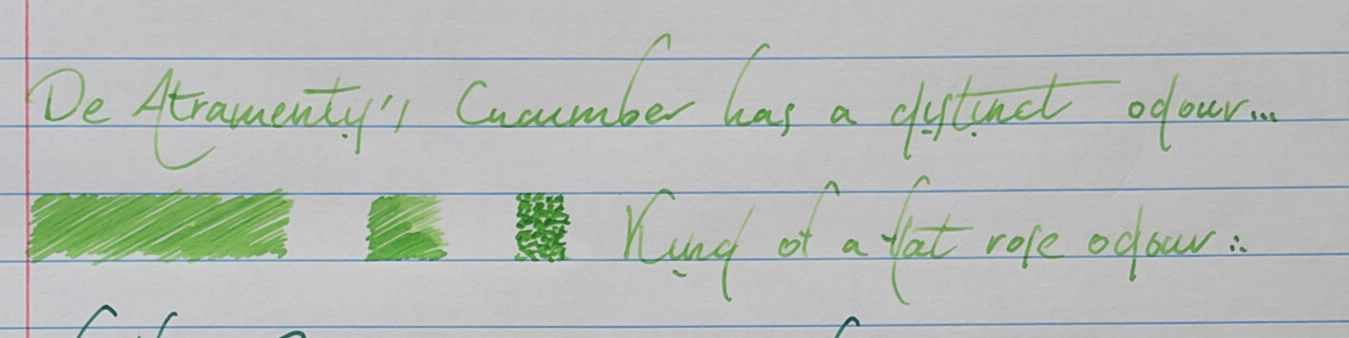 De Atramentis's Cucumber has a distinct odour...
Kind of a fat rose odour :.